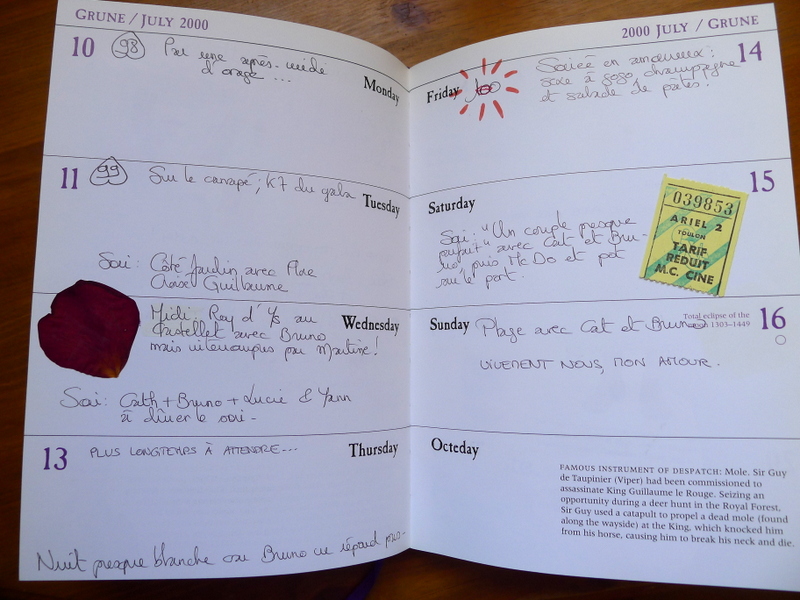 GRUNE / JULY 2000
10
98
Par une après-midi
d'orage ...
Monday
11
99
Sur le canapé ; K7 du gala
Tuesday
Soir : Côté Jardin avec
Guillaume
Midi : Roy d'Ys au
Castellet avec Bruno
mais interrompus par Martine !
Wednesday
Soir : Cath + Bruno + Lucie & Yann
à dîner le soir -
13
PLUS LONGTEMPS À ATTENDRE...
Thursday
Nuit presque blanche car Bruno ne répond pas -
2000 JULY / GRUNE
Friday
100
Soirée en amoureux :
sexe à gogo, champagne
et salade de pâtes.
14
Saturday
15
Soir : "Un couple presque
parfait" avec Cat et Bru-
no, puis Mc Do et pot
sur le port.
039853
ARIEL 2
TOULON
TARIF
REDUIT
M.C. CINE
Sunday
Plage avec Cat et Bruno
Total eclipse of the
1303–1449
16
VIVEMENT NOUS, MON AMOUR.
Octeday
FAMOUS INSTRUMENT OF DESPATCH: Mole. Sir Guy
de Taupinier (Viper) had been commissioned to
assassinate King Guillaume le Rouge. Seizing an
opportunity during a deer hunt in the Royal Forest,
Sir Guy used a catapult to propel a dead mole (found
along the wayside) at the King, which knocked him
from his horse, causing him to break his neck and die.